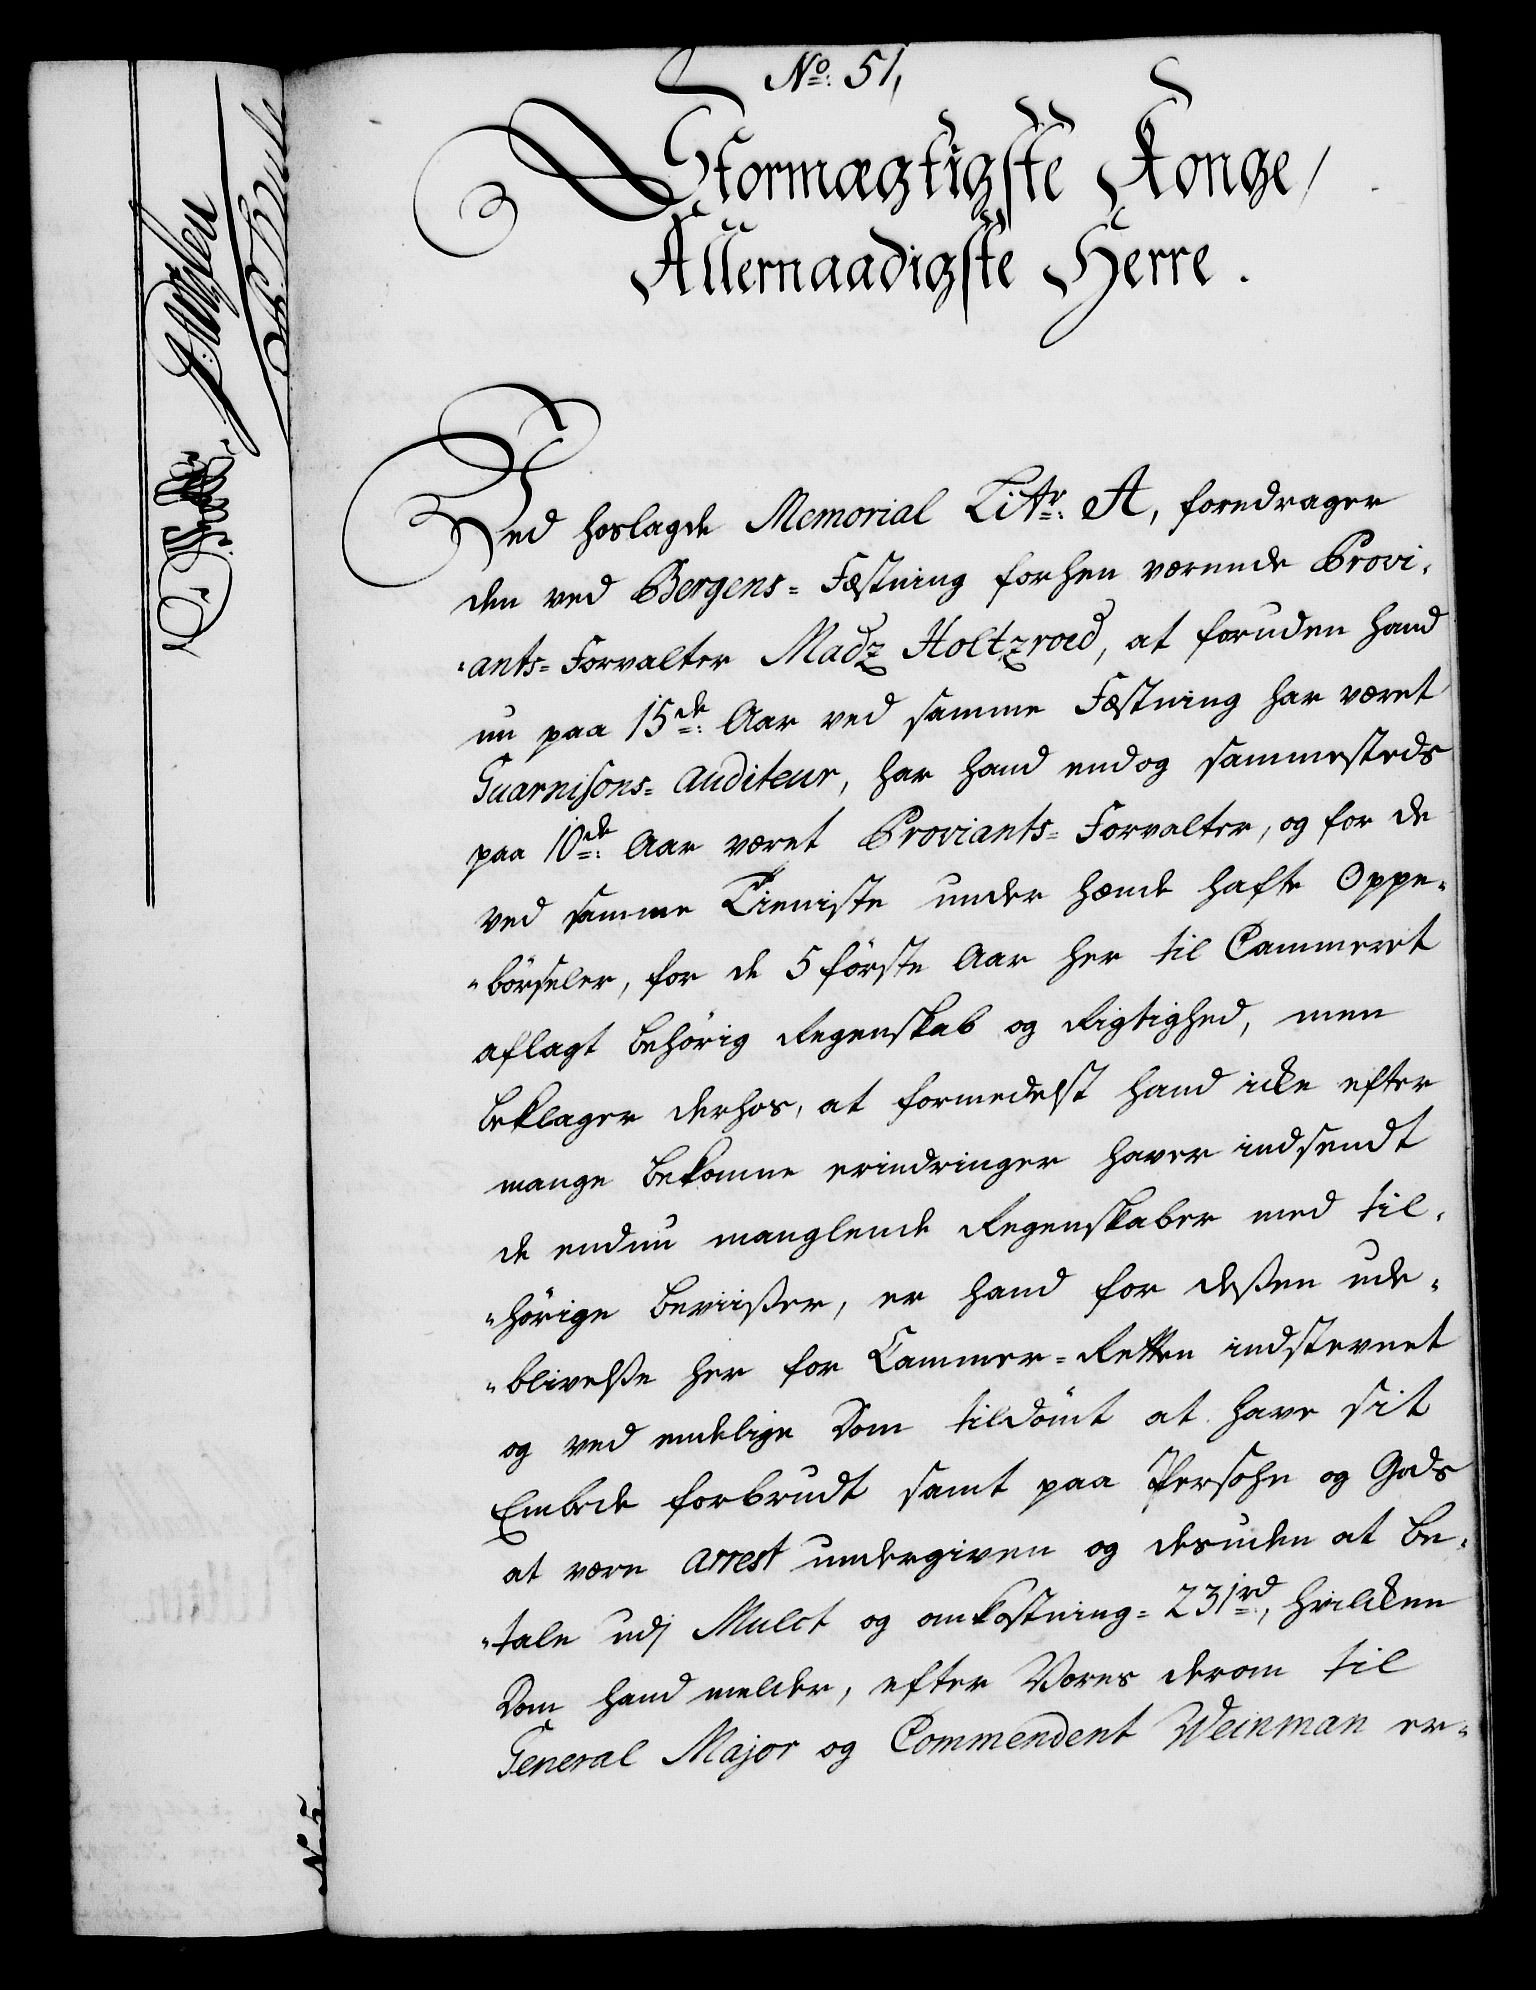 No: 51,
Stormægtigste Konge,
Allernaadigste Herre.
Ved hoslagde Memorial Litr: A, foredrager
den ved Bergens= Fæstning forhen værende Provi-
-ants= Forvalter Madz Holtzroed, at foruden hand
nu paa 15de: Aar ved samme Fæstning har været
Guarnisons= Auditeur, har hand endog sammesteds
paa 10de: Aar været Proviants= Forvalter, og for de
ved samme Tieniste under hænde hafte Oppe-
-börseler, for de 5 förste Aar her til Cammeret
aflagt behörig Regenskab og Rigtighed, men
beklager derhos, at formedelst hand icke efter
mange bekomne erindringer haver indsendt
de endnu manglende Regenskaber med til-
-hörige beviißer, er hand for deßen ude-
-blivelße her for Cammer=Retten indstevnet
og ved endelige Dom tildömt at have sit
Embede forbrudt samt paa Persohn og Gods
at være Arrest undergiven og desuden at be-
-tale udj Mulct og omkostning= 231rd:, hvilcken
Dom hand melder, efter Vores derom til
General Major og Commendent Weinman er-